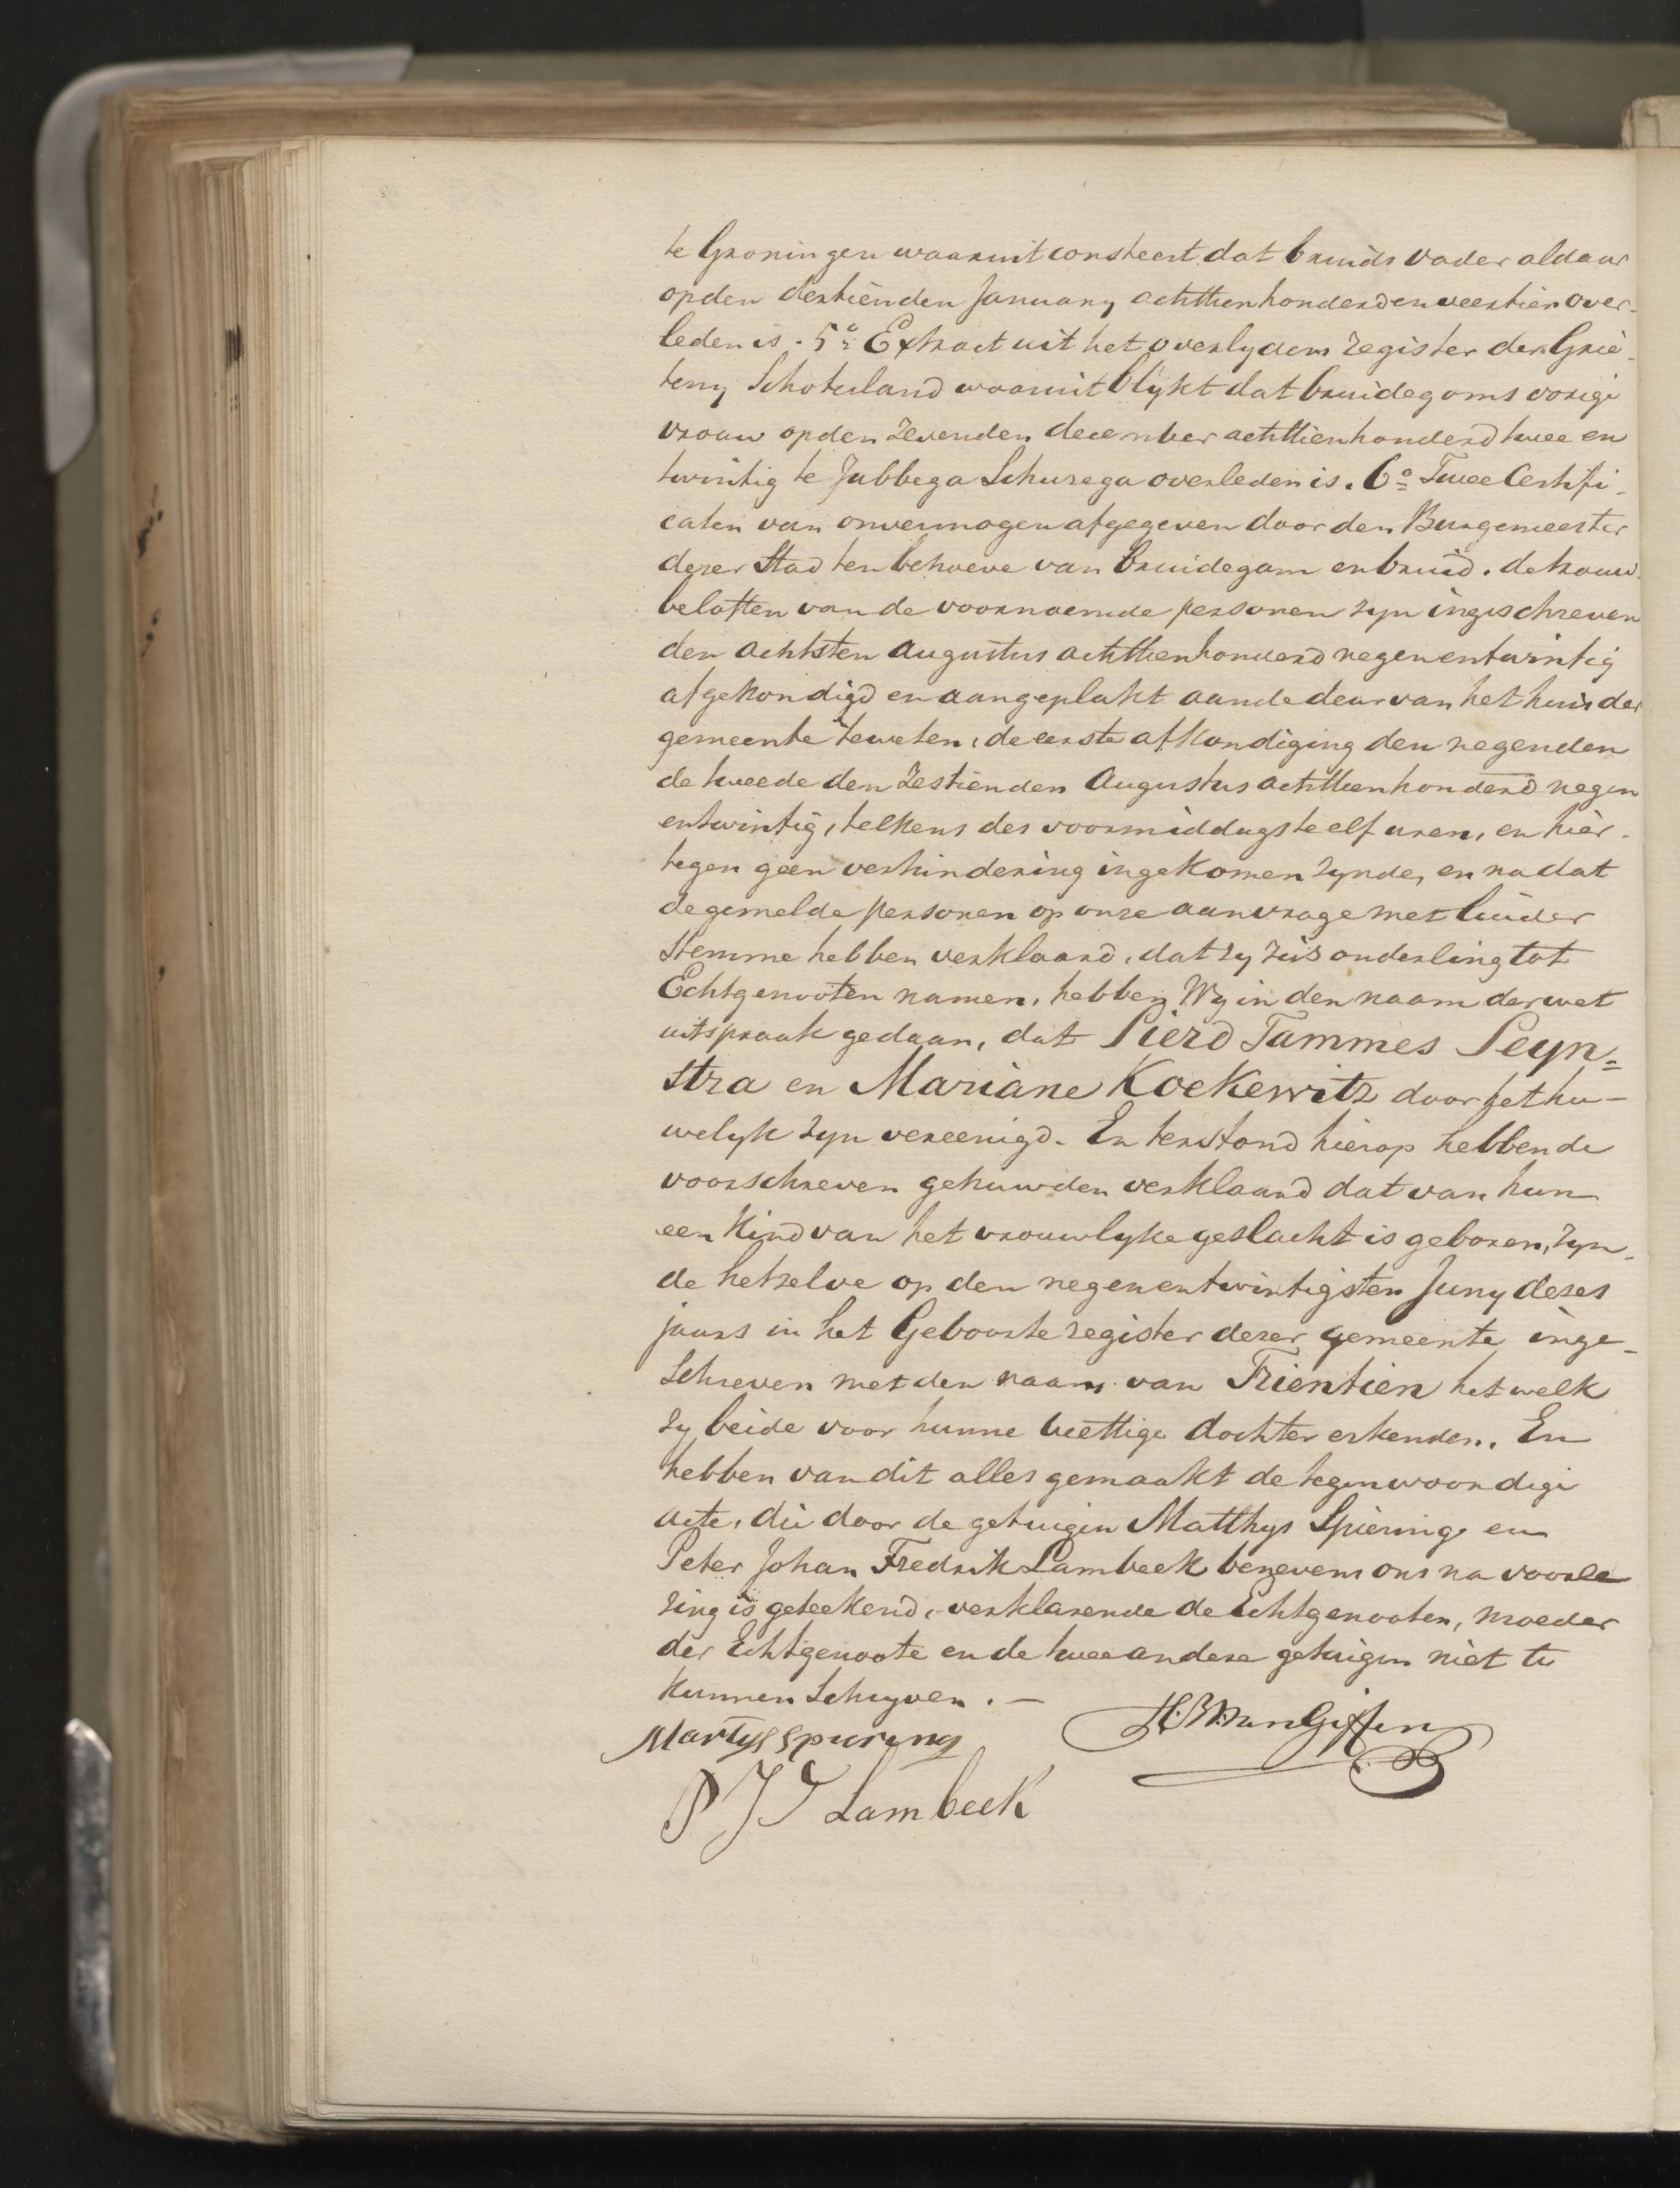 te Groningen waaruit consteert dat bruids vader aldaar
op den dertienden January achttienhonderd en veertien over-
leden is. 5º Extract uit het overlydens register der Grie-
teny Schoterland waaruit blykt dat bruidegoms vorige
vrouw op den zevenden december achttienhonderd twee en
twintig te Jubbega Schurega overleden is. 6º Twee Certifi-
caten van onvermogen afgegeven door den Burgemeester
dezer Stad ten behoeve van bruidegom en bruid. de trouw-
beloften van de voornoemde personen zyn ingeschreven
den achtsten augustus achttienhonderd negenentwintig
afgekondigd en aangeplakt aan de deur van het huis der
gemeente te weten, de eerste afkondiging den negenden
de tweede den zestienden Augustus achttienhonderd negen
entwintig, telkens des voormiddags te elf uren, en hier-
tegen geen verhindering ingekomen zynde, en nadat
de gemelde personen op onze aanvrage met luider
stemme hebben verklaard, dat zy zich onderling tot
Echtgenooten namen, hebben Wy in den naam der wet
uitspraak gedaan, dat Sierd Tammes Seyn=
stra en Mariane Koekewitz door het hu-
welyk zyn vereenigd. En terstond hierop hebben de
voorschreven gehuwden verklaard dat van hun
een Kind van het vrouwlyke geslacht is geboren, zyn-
de hetzelve op den negenentwintigsten Juny dezes
jaars in het Geboorte register dezer gemeente inge-
schreven met den naam van Trientien het welk
zy beide voor hunne wettige dochter erkenden. En
hebben van dit alles gemaakt de tegenwoordige
acte, die door de getuigen Matthys Spiering en
Peter Johan Fredrik Lambeek benevens ons na voorle
zing is geteekend, verklarende de Echtgenooten, moeder
der Echtgenoote en de twee andere getuigen niet te
kunnen schryven. —
Martys spiering
P J F Lambeek